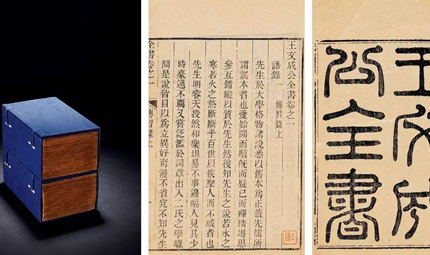 王文成
公全書
王文成公全書卷之一
語錄一 傳習錄上
先生於大學格物諸說悉以舊本爲正蓋先儒所
謂誤本者也愛始聞而駭既而疑已而殫精竭思
參互錯縱以質於先生然後知先生之說若水之
寒若火之熱斷斷乎百世以俟聖人而不惑者也
先生明睿天授然和樂坦易不事邊幅人見其少
時豪邁不羈又嘗泛濫於詞章出入二氏之學驟
聞是說皆目以爲立異好奇漫不省究不知先生
全書卷之一